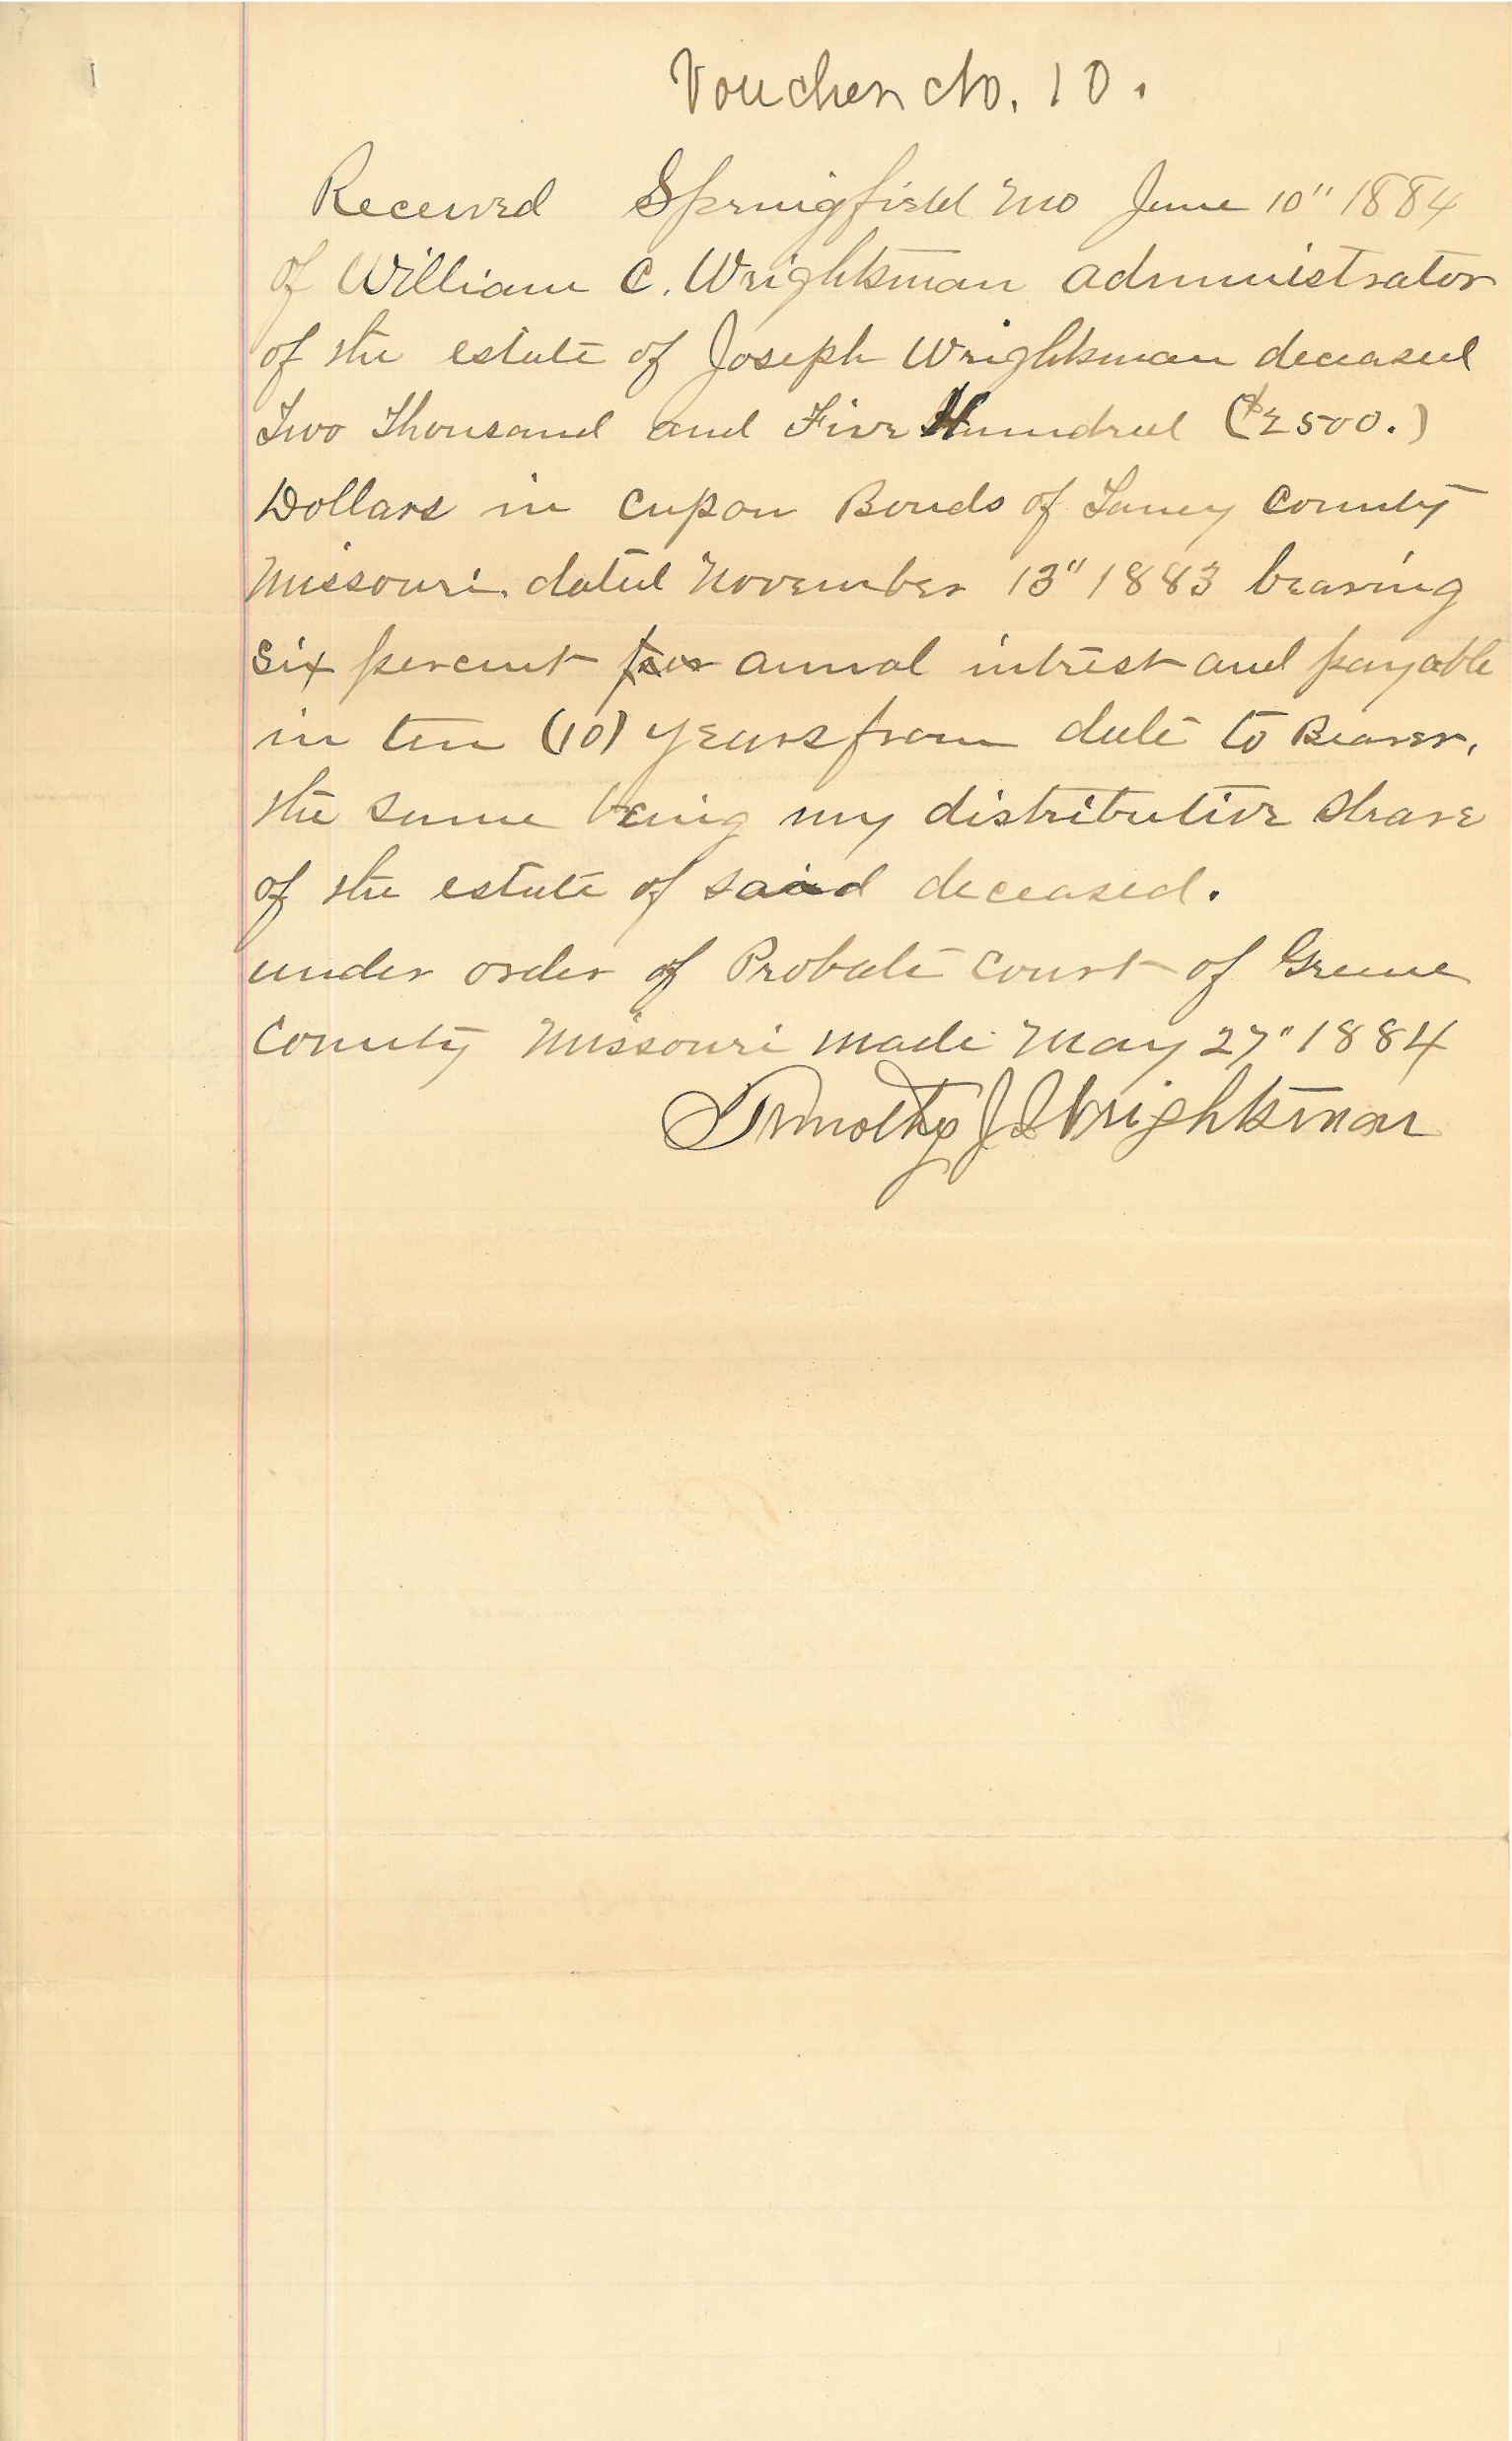 Voucher No. 10.
Received Springfield Mo June 10" 1884
of William C. Wrightsman administrator
of the estate of Joseph Wrightsman deceased
Two Thousand and Five Hundred ($2500.)
Dollars in Cupon Bonds of Taney County
Missouri. dated November 13" 1883 bearing
six percent per annual intrest and payable
in ten (10) years from date to Bearer,
the same being my distributive share
of the estate of said deceased.
under order of Probate Court of Greene
County Missouri made May 27" 1884
Timothy J Wrightsman